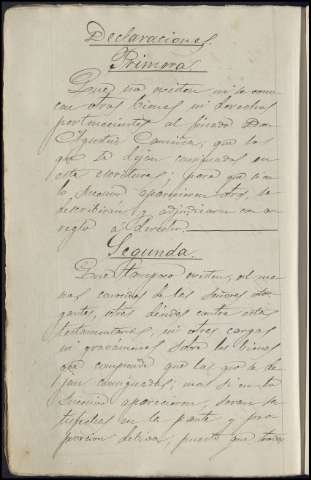 Declaraciones.
Primera
Que no existen ni se cono-
cen otros bienes ni derechos
pertenecientes al finado Don
Agustin que los
que se dejan consignados en
esta escritura; para que si en
lo sucesivo aparecieran otros, se
describirán y adjudicaran con ar-
reglo á derecho.
Segunda.
Que tampoco existen, al me-
nos conocidas de los señores otor-
gantes, otras deudas contra esta
testamentaria, ni otras cargas
ni gravámenes sobre los bienes
que comprende que las que se de-
jan consignadas, mas si en lo
sucesivo aparecieran, seran sa-
tisfechas en la parte y pro-
porcion debida, puesto que todos